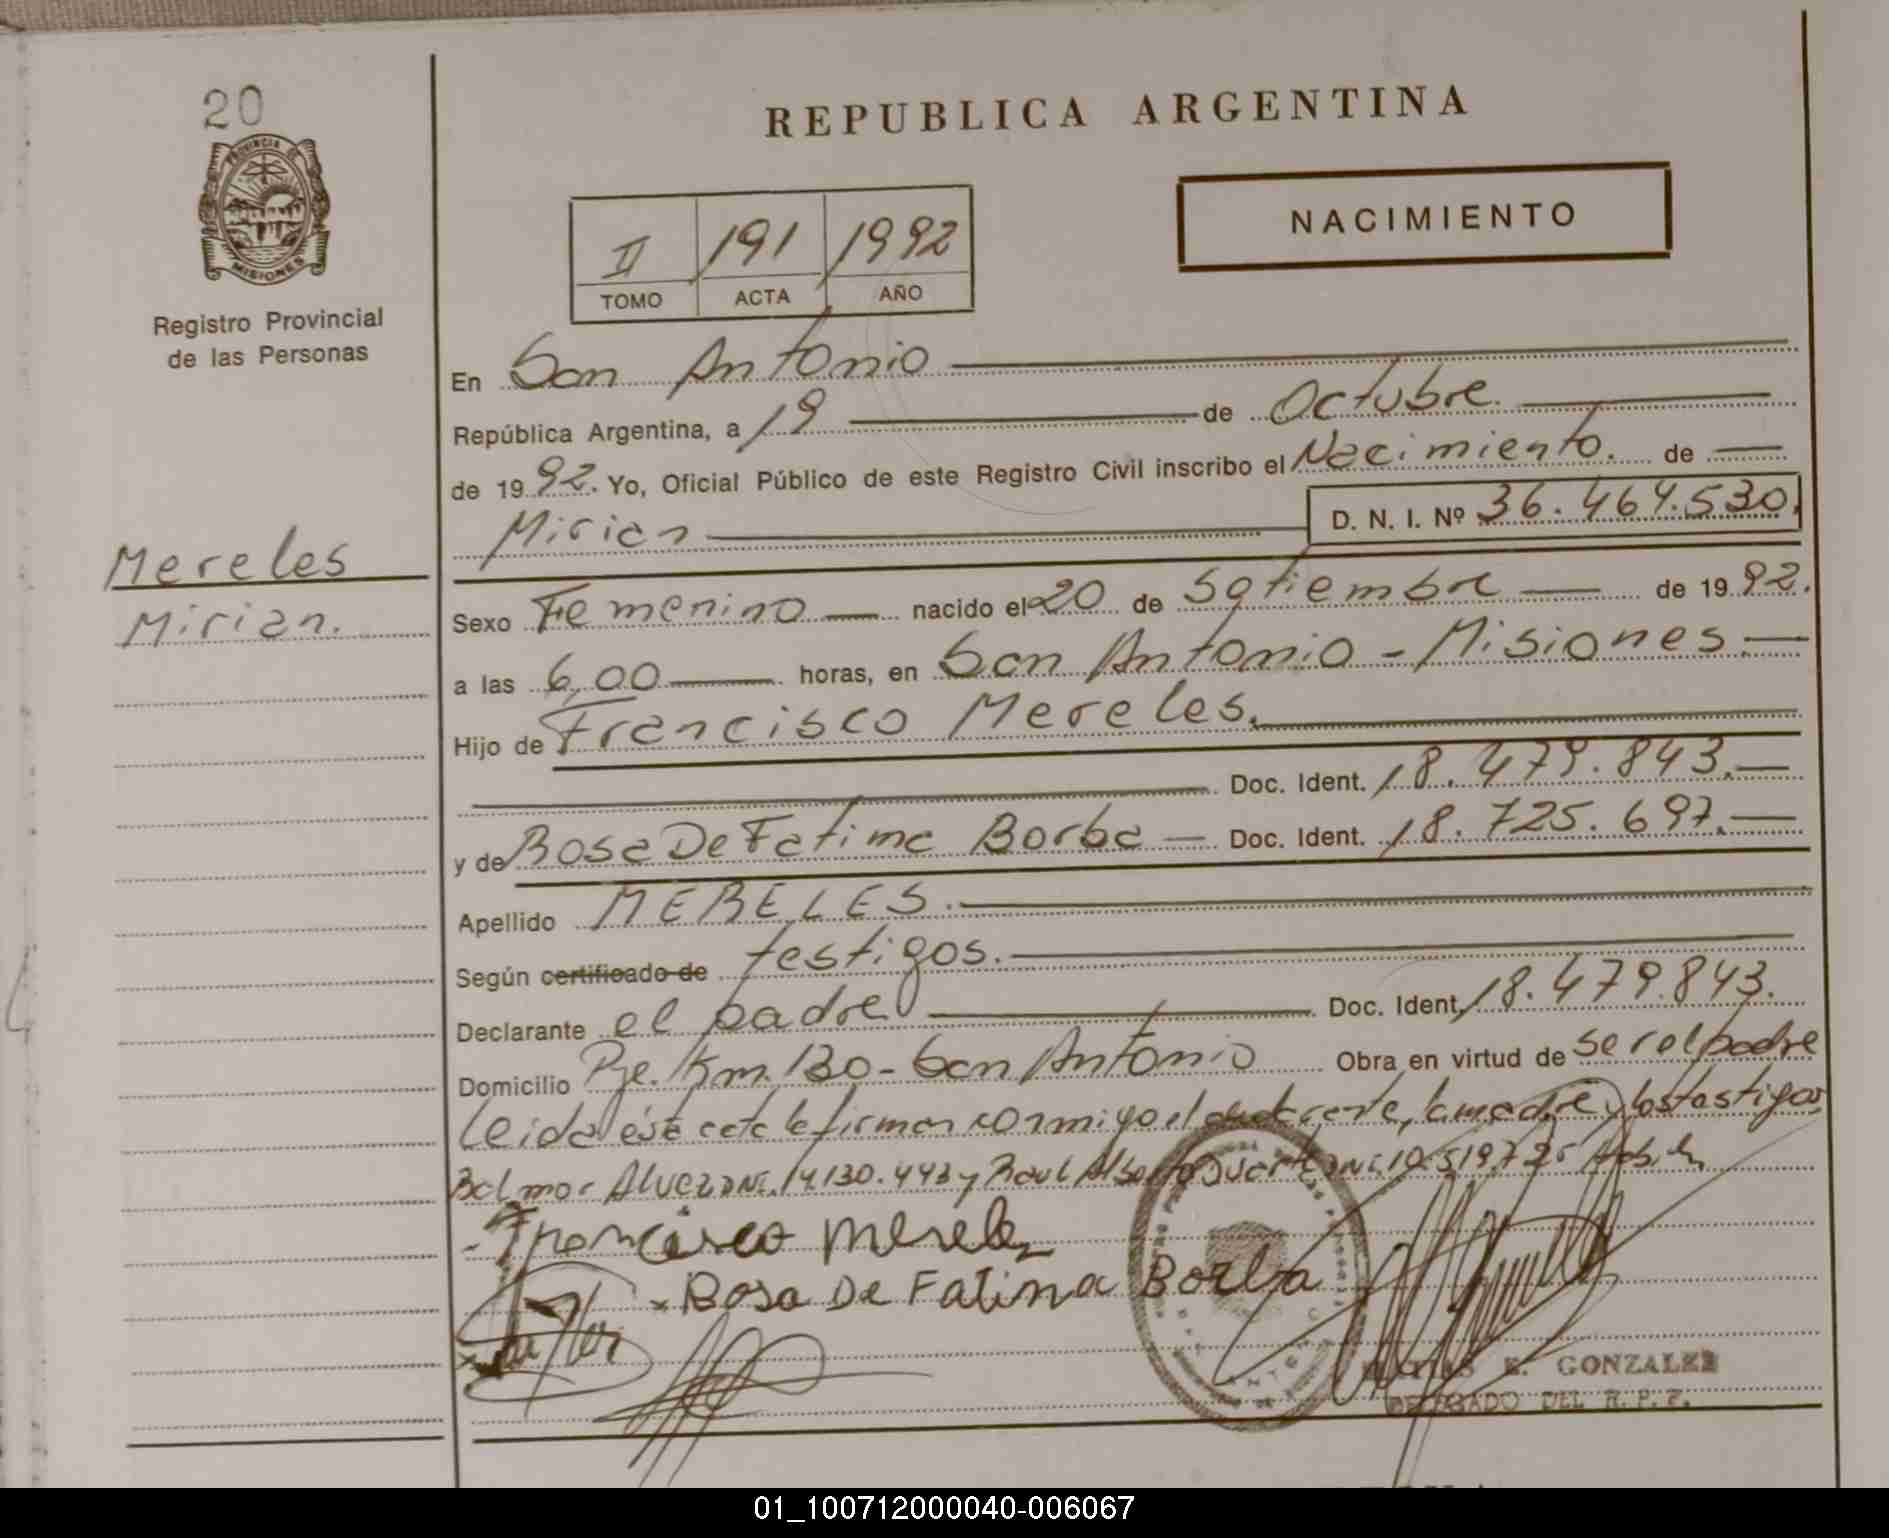 20
PROVINCIA DE
MISIONES
Registro Provincial
de las Personas
Mereles
Mirian.
REPUBLICA ARGENTINA
NACIMIENTO
II 191 1992
TOMO ACTA AÑO
En San Antonio
República Argentina, a 19 de Octubre
de 1992. Yo, Oficial Público de este Registro Civil inscribo el Nacimiento. de
Mirian D. N. I. Nº 36.464.530.
Sexo Femenino nacido el 20 de Sqtiembre de 1992.
a las 6,00 horas, en San Antonio - Misiones.
Hijo de Francisco Mereles.
Doc. Ident. 18.479.843.
y de Rosa De Fatima Borba Doc. Ident. 18.725.697.
Apellido MERELES.
Según certificado de testigos.
Declarante el padre Doc. Ident. 18.479.843.
Domicilio Pje. Km. 130 - San Antonio Obra en virtud de ser el padre
Leida ésta acta la firman conmigo el declarante, la madre y los testigos
Belmor Alvez DNI. 14.130.443 y Raul Alberto Duarte DNI. 10.519.725
Francisco Mereles
x Rosa De Fatima Borba
E. GONZALEZ
DELEGADO DEL R. P. P.
01_100712000040-006067